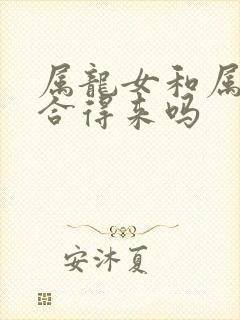 属龍女和属
合得来吗
安沐夏